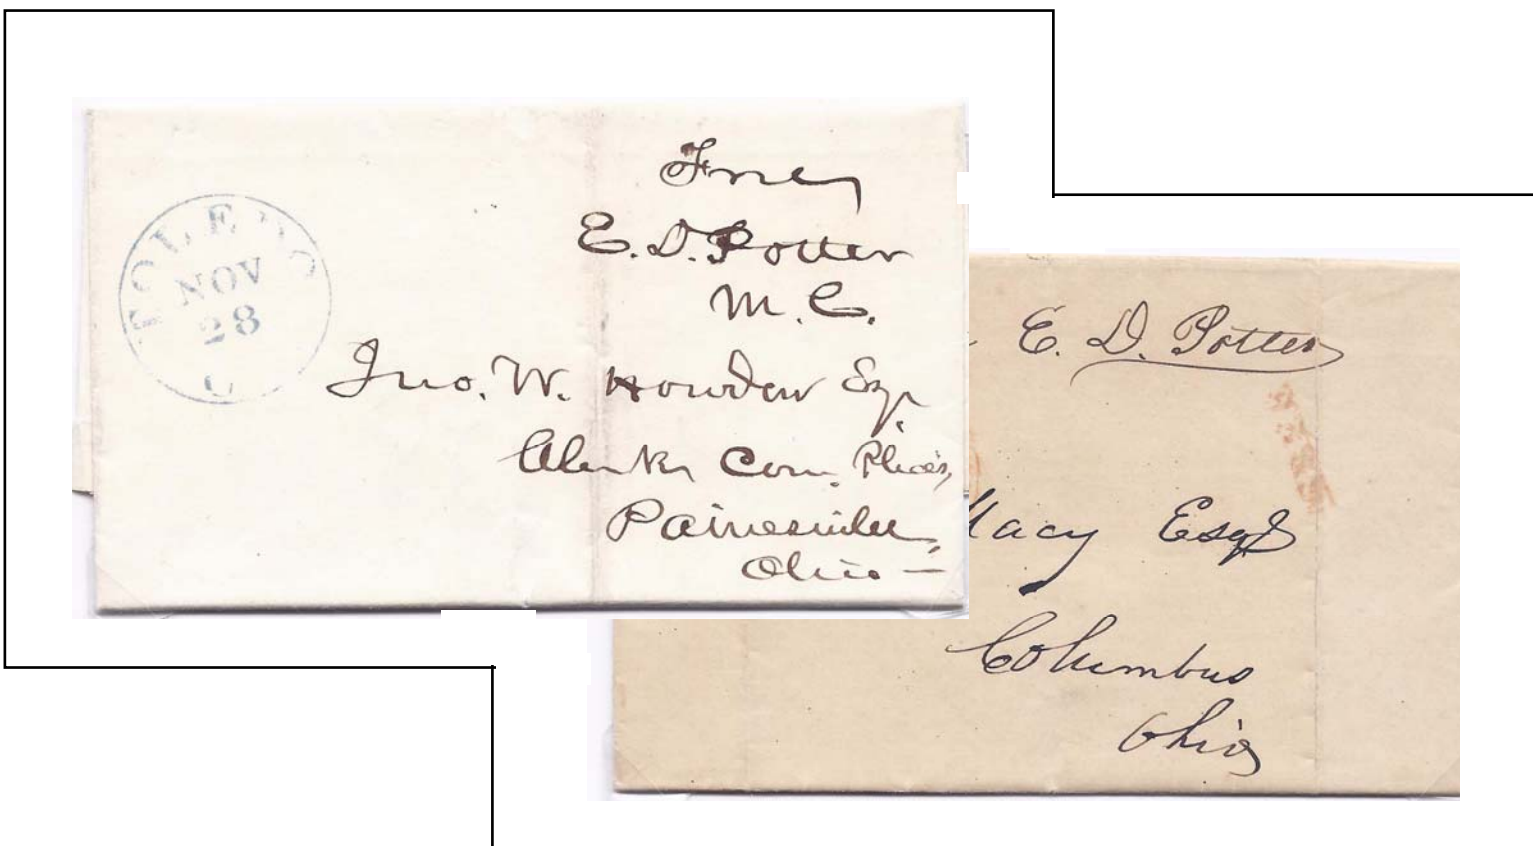 TOLEDO
NOV
28
O
Free
E. D. Potter
M. C.
Jno. W. Howden Esq.
Clerk Com. Pleas,
Painesville,
Ohio —
E. D. Potter
Macy Esqr
Columbus
Ohio